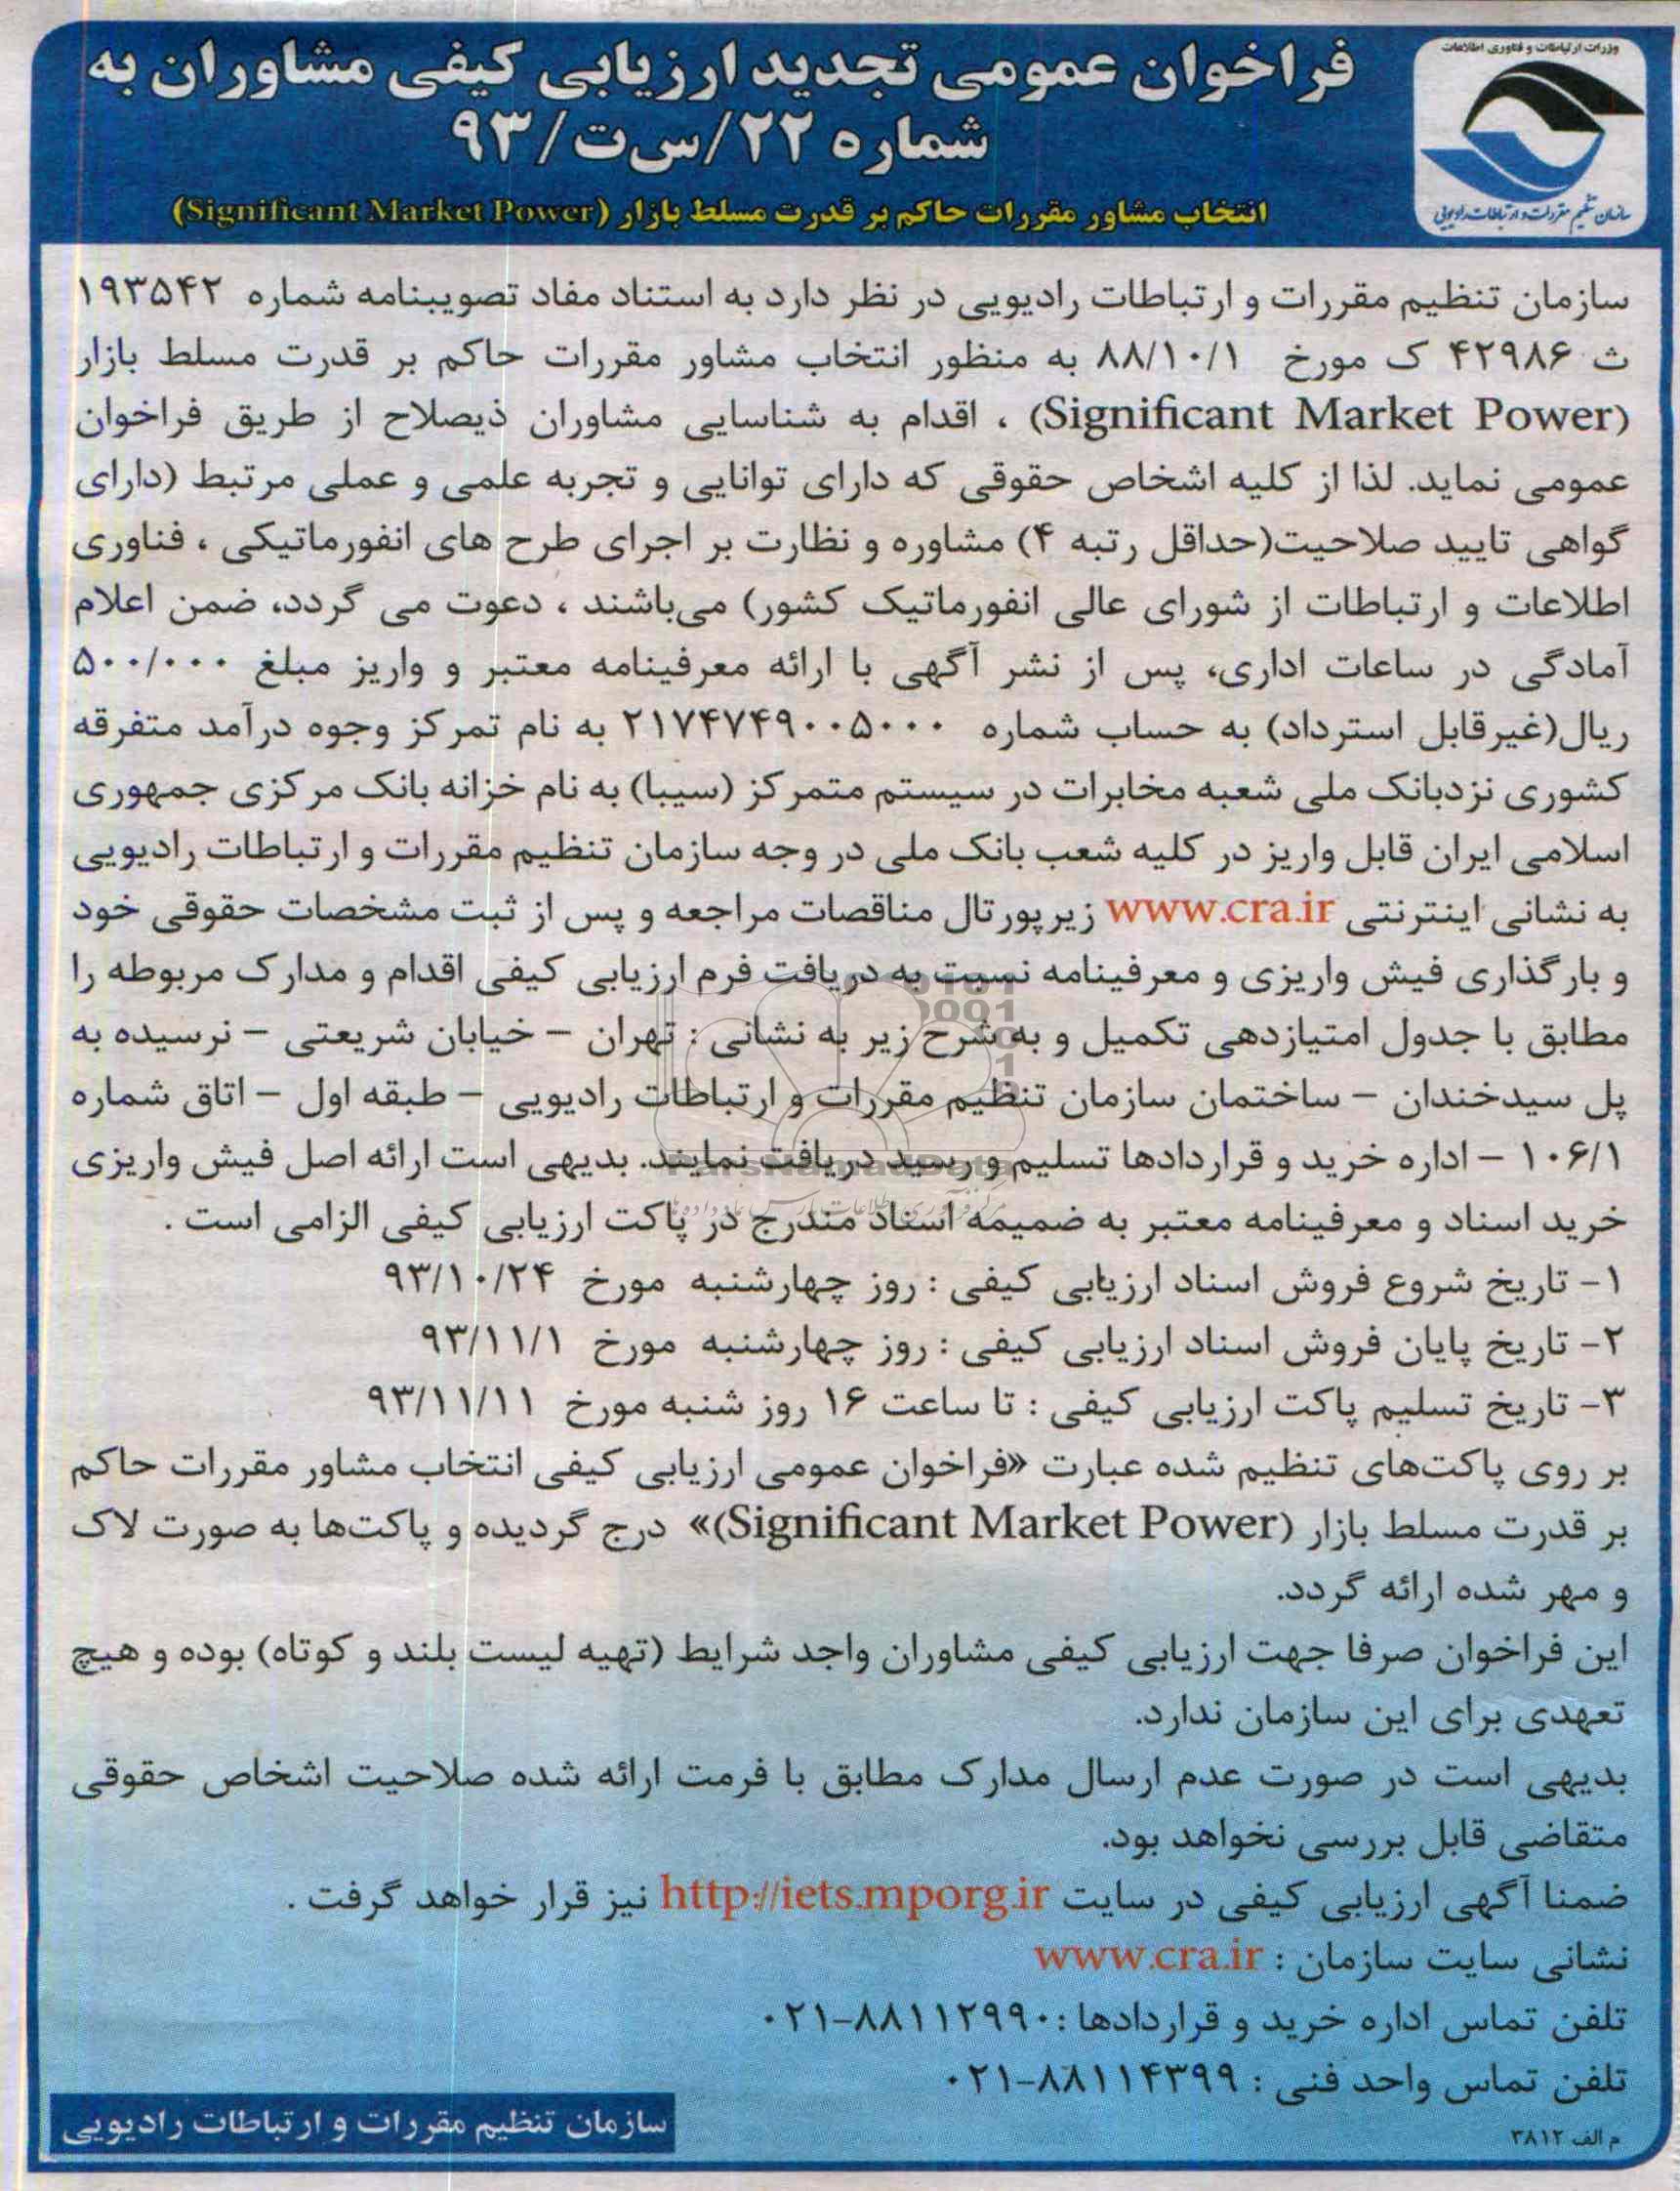 وزارت ارتباطات و فناوری اطلاعات
سازمان تنظیم مقررات و ارتباطات رادیویی
فراخوان عمومی تجدید ارزیابی کیفی مشاوران به
شماره ۲۲/س‌ت/۹۳
انتخاب مشاور مقررات حاکم بر قدرت مسلط بازار (Significant Market Power)
سازمان تنظیم مقررات و ارتباطات رادیویی در نظر دارد به استناد مفاد تصویبنامه شماره ۱۹۳۵۴۲
ث ۴۲۹۸۶ ک مورخ ۸۸/۱۰/۱ به منظور انتخاب مشاور مقررات حاکم بر قدرت مسلط بازار
(Significant Market Power) ، اقدام به شناسایی مشاوران ذیصلاح از طریق فراخوان
عمومی نماید. لذا از کلیه اشخاص حقوقی که دارای توانایی و تجربه علمی و عملی مرتبط (دارای
گواهی تایید صلاحیت(حداقل رتبه ۴) مشاوره و نظارت بر اجرای طرح های انفورماتیکی ، فناوری
اطلاعات و ارتباطات از شورای عالی انفورماتیک کشور) می‌باشند ، دعوت می گردد، ضمن اعلام
آمادگی در ساعات اداری، پس از نشر آگهی با ارائه معرفینامه معتبر و واریز مبلغ ۵۰۰/۰۰۰
ریال(غیرقابل استرداد) به حساب شماره ۲۱۷۴۷۴۹۰۰۵۰۰۰ به نام تمرکز وجوه درآمد متفرقه
کشوری نزدبانک ملی شعبه مخابرات در سیستم متمرکز (سیبا) به نام خزانه بانک مرکزی جمهوری
اسلامی ایران قابل واریز در کلیه شعب بانک ملی در وجه سازمان تنظیم مقررات و ارتباطات رادیویی
به نشانی اینترنتی www.cra.ir زیرپورتال مناقصات مراجعه و پس از ثبت مشخصات حقوقی خود
و بارگذاری فیش واریزی و معرفینامه نسبت به دریافت فرم ارزیابی کیفی اقدام و مدارک مربوطه را
مطابق با جدول امتیازدهی تکمیل و به شرح زیر به نشانی : تهران – خیابان شریعتی – نرسیده به
پل سیدخندان – ساختمان سازمان تنظیم مقررات و ارتباطات رادیویی – طبقه اول – اتاق شماره
۱۰۶/۱ – اداره خرید و قراردادها تسلیم و رسید دریافت نمایند. بدیهی است ارائه اصل فیش واریزی
خرید اسناد و معرفینامه معتبر به ضمیمه اسناد مندرج در پاکت ارزیابی کیفی الزامی است .
۱- تاریخ شروع فروش اسناد ارزیابی کیفی : روز چهارشنبه مورخ ۹۳/۱۰/۲۴
۲- تاریخ پایان فروش اسناد ارزیابی کیفی : روز چهارشنبه مورخ ۹۳/۱۱/۱
۳- تاریخ تسلیم پاکت ارزیابی کیفی : تا ساعت ۱۶ روز شنبه مورخ ۹۳/۱۱/۱۱
بر روی پاکت‌های تنظیم شده عبارت «فراخوان عمومی ارزیابی کیفی انتخاب مشاور مقررات حاکم
بر قدرت مسلط بازار (Significant Market Power)» درج گردیده و پاکت‌ها به صورت لاک
و مهر شده ارائه گردد.
این فراخوان صرفا جهت ارزیابی کیفی مشاوران واجد شرایط (تهیه لیست بلند و کوتاه) بوده و هیچ
تعهدی برای این سازمان ندارد.
بدیهی است در صورت عدم ارسال مدارک مطابق با فرمت ارائه شده صلاحیت اشخاص حقوقی
متقاضی قابل بررسی نخواهد بود.
ضمنا آگهی ارزیابی کیفی در سایت http://iets.mporg.ir نیز قرار خواهد گرفت .
نشانی سایت سازمان : www.cra.ir
تلفن تماس اداره خرید و قراردادها :۸۸۱۱۲۹۹۰-۰۲۱
تلفن تماس واحد فنی : ۸۸۱۱۴۳۹۹-۰۲۱
م الف ۳۸۱۲
سازمان تنظیم مقررات و ارتباطات رادیویی